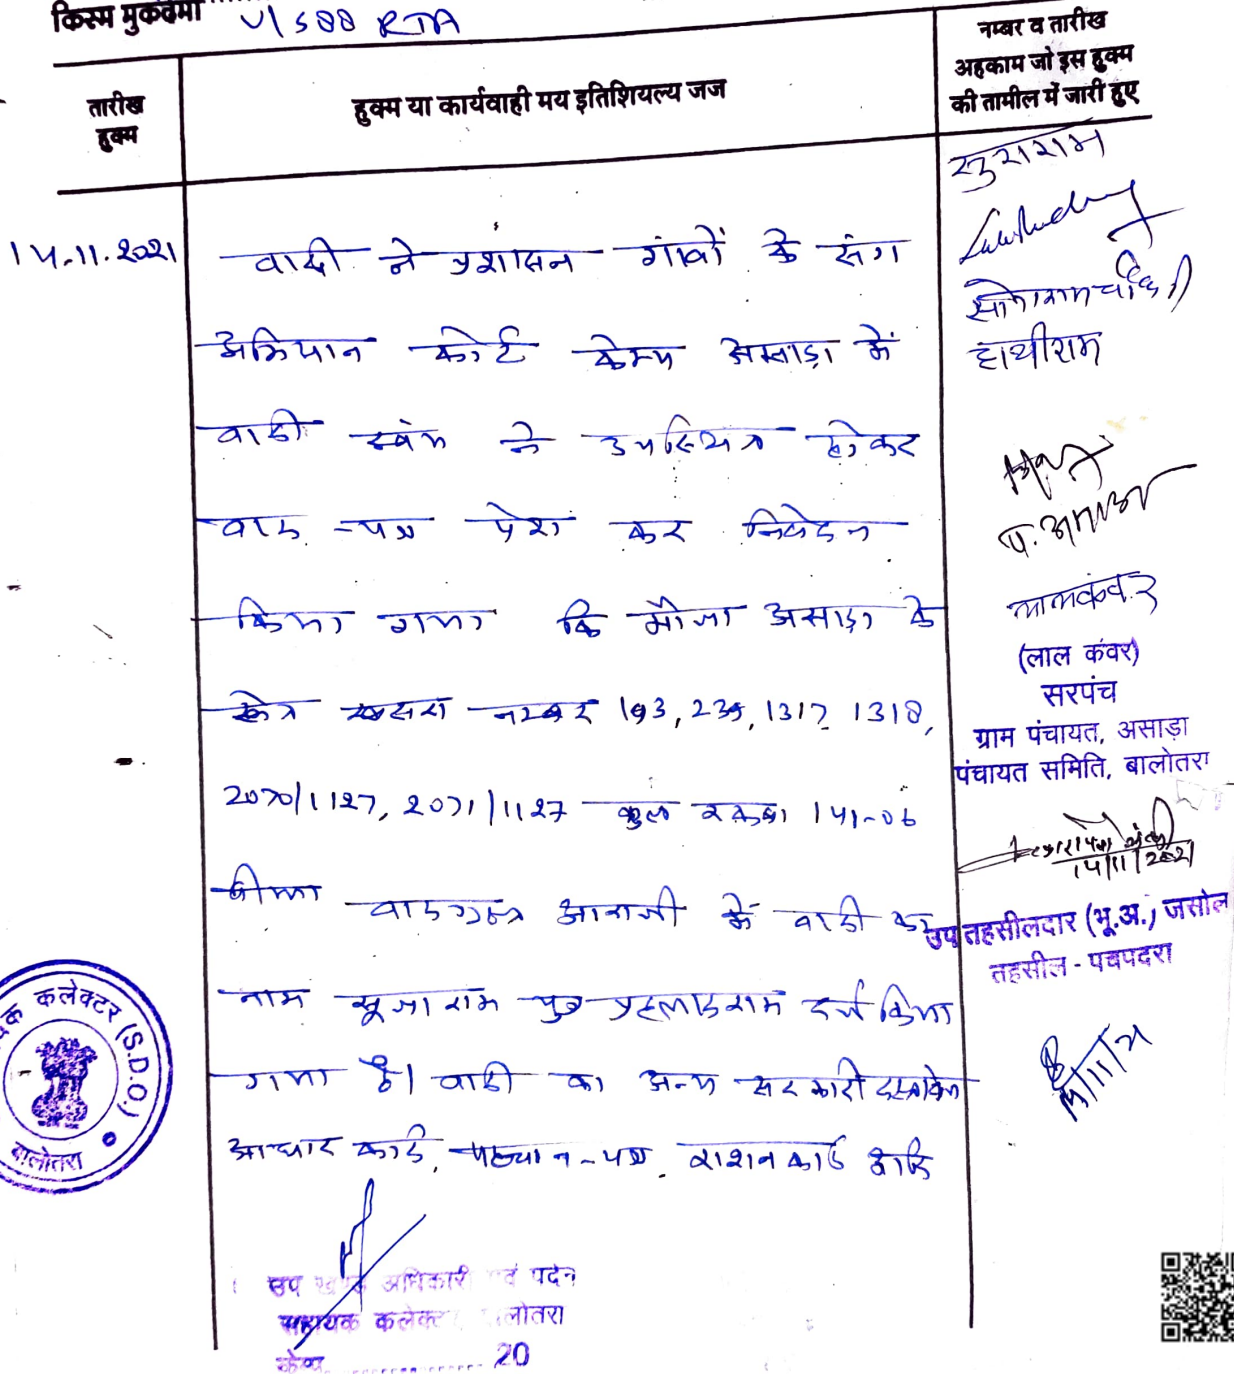 किस्म मुकदमा U/S 88 RTA
तारीख
हुक्म
हुक्म या कार्यवाही मय इतिशियल्य जज
नम्बर व तारीख
अहकाम जो इस हुक्म
की तामील में जारी हुए
14.11.2021
वादी ने प्रशासन गांवों के संग
अभियान कोर्ट केम्प असाड़ा में
वादी स्वंय ने उपस्थित होकर
वाद-पत्र पेश कर निवेदन
किया गया कि मौजा असाड़ा के
खेत्र खसरा नम्बर 193, 239, 1317, 1318,
2070/1127, 2071/1127 कुल रकबा 141-06
बीघा वादग्रस्त आराजी में वादी का
नाम सूजाराम पुत्र प्रहलादराम दर्ज किया
गया है। वादी का अन्य सरकारी दस्तावेज
आधार कार्ड, पहचान-पत्र, राशन कार्ड आदि
हाथीराम
(लाल कंवर)
सरपंच
ग्राम पंचायत, असाड़ा
पंचायत समिति, बालोतरा
14/11/2021
उप तहसीलदार (भू.अ.) जसोल
तहसील - पचपदरा
कलेक्टर (S.D.O.)
बालोतरा
उप खण्ड अधिकारी एवं पदेन
सहायक कलेक्टर बालोतरा
केम्प ............... 20